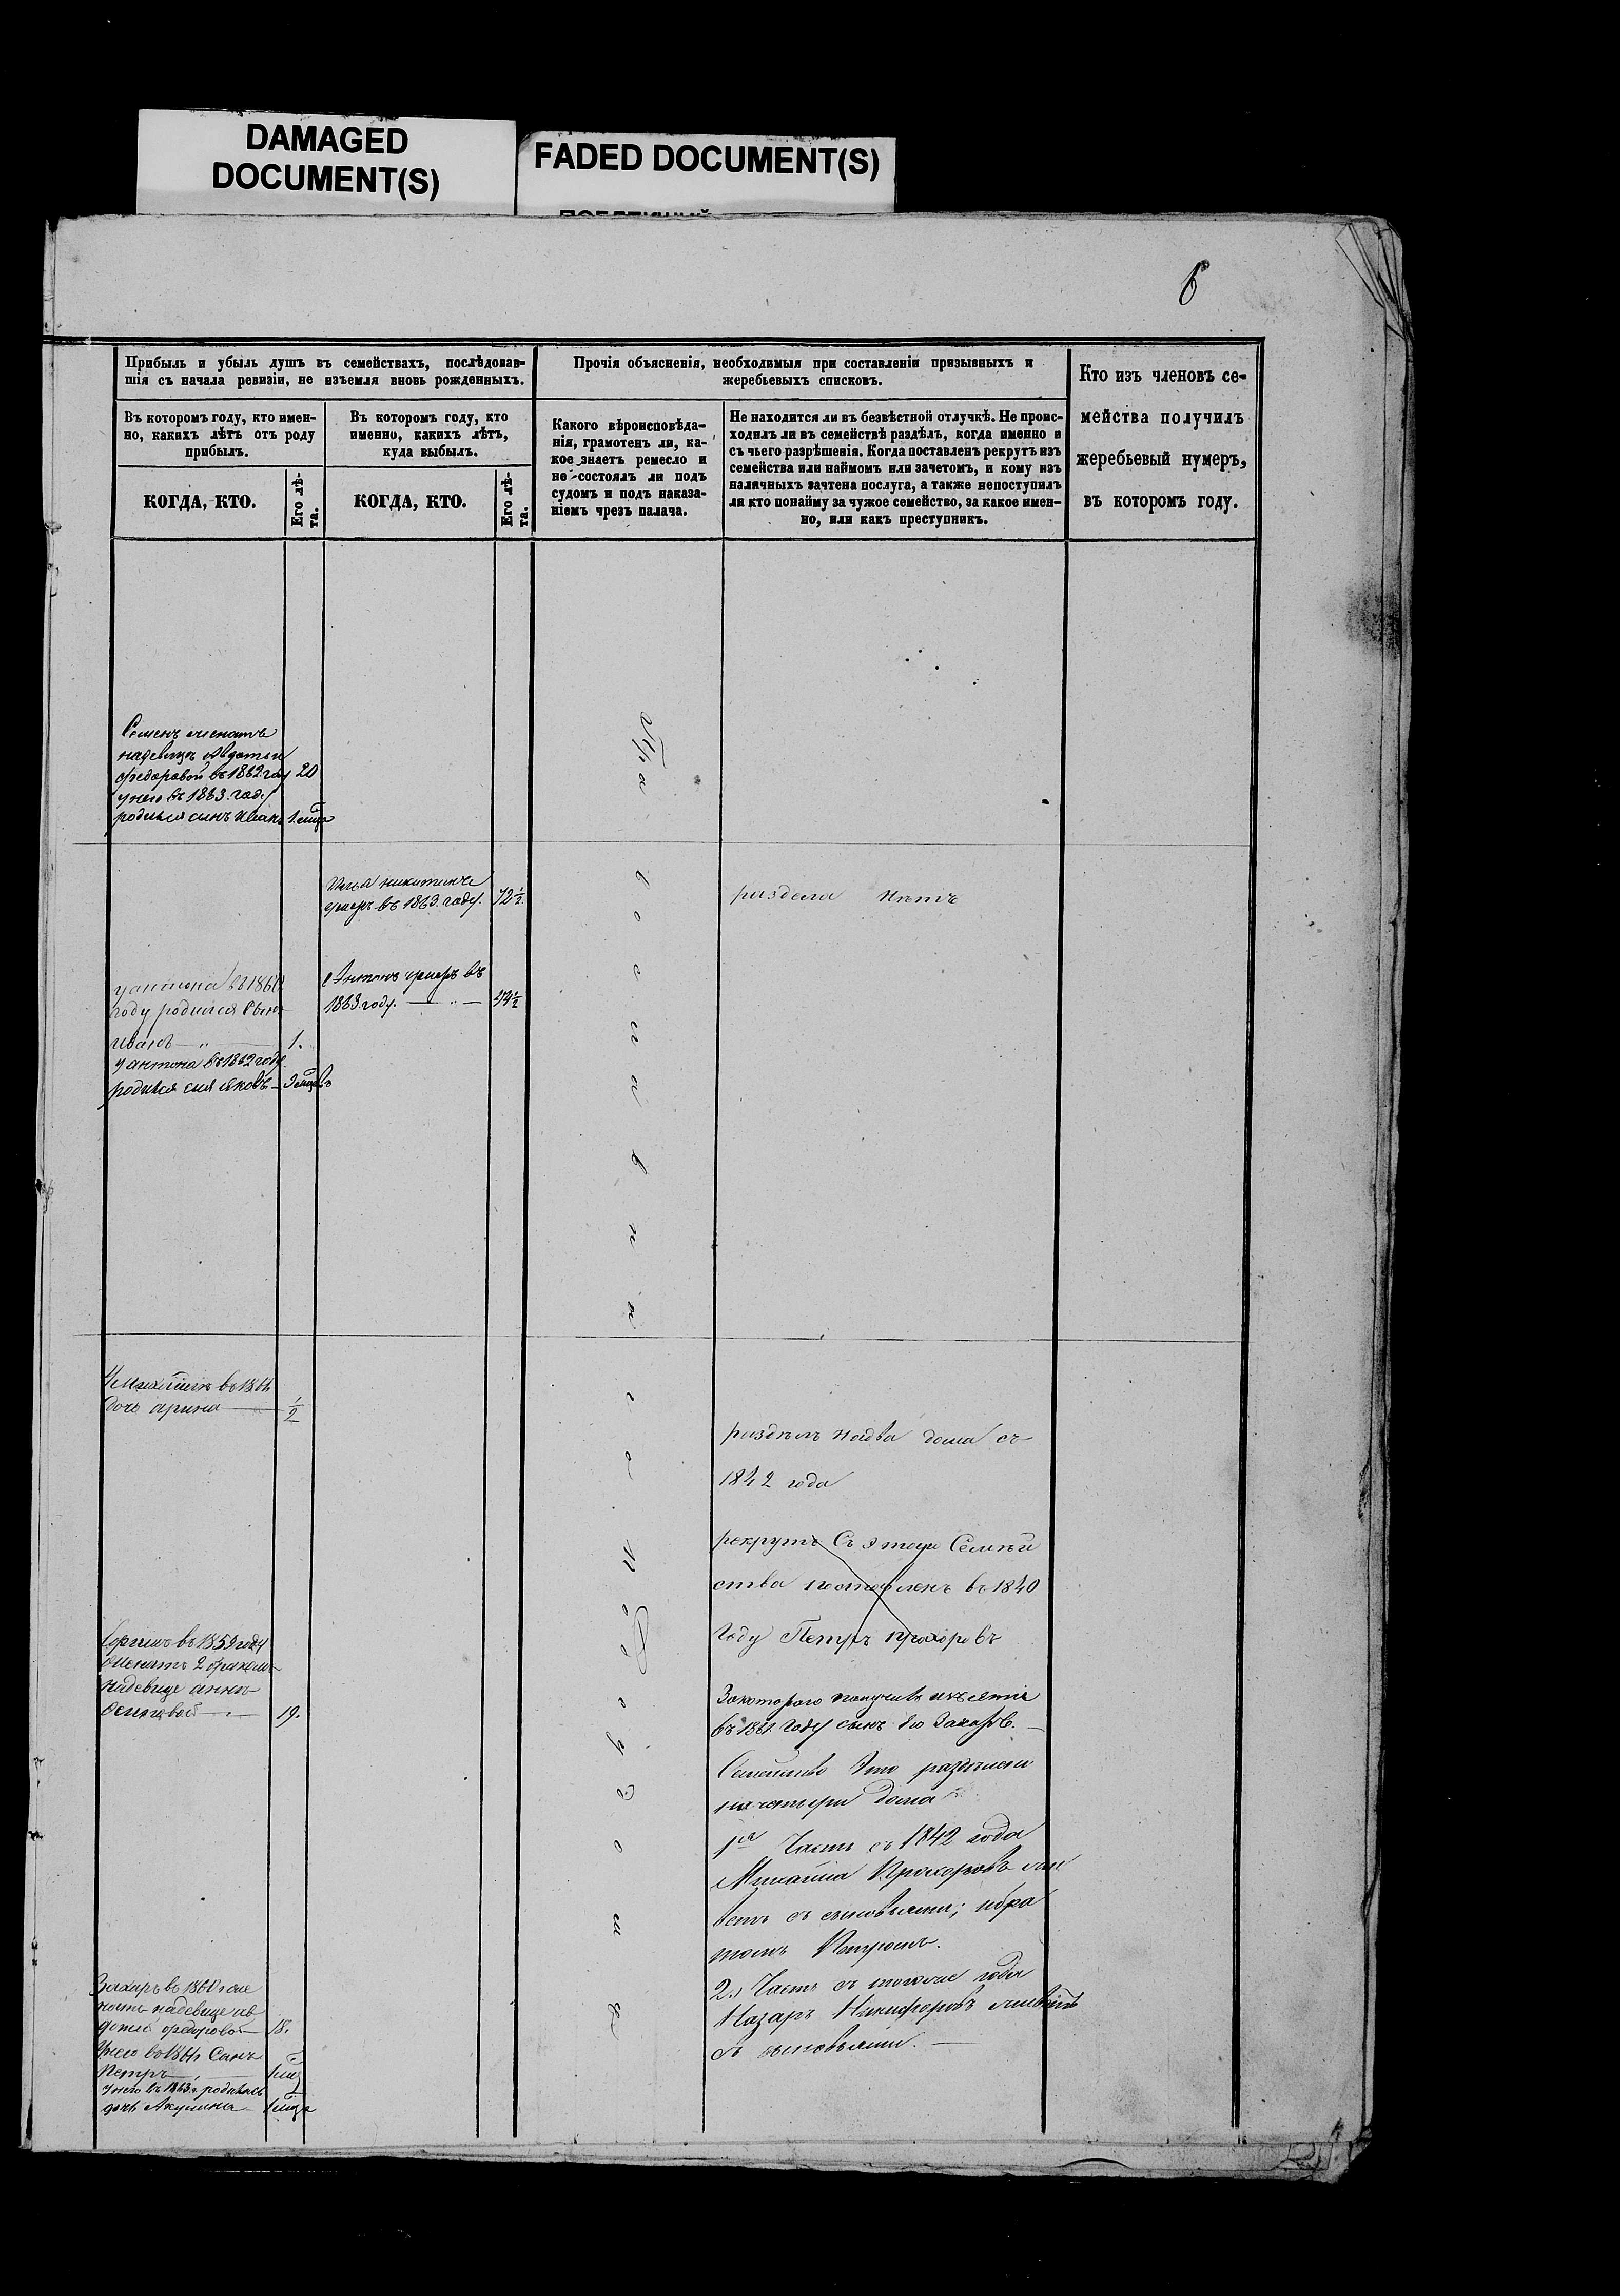 DAMAGED
DOCUMENT(S)
FADED DOCUMENT(S)
6
Прибыль и убыль душъ въ семействахъ, послѣдовав-
шія съ начала ревизіи, не изъемля вновь рожденныхъ.
Прочія объясненія, необходимыя при составленіи призывныхъ и
жеребьевыхъ списковъ.
Кто изъ членовъ се-
мейства получилъ
жеребьевый нумеръ,
въ которомъ году.
Въ которомъ году, кто имен-
но, какихъ лѣтъ отъ роду
прибылъ.
Въ которомъ году, кто
именно, какихъ лѣтъ,
куда выбылъ.
Какого вѣроисповѣда-
нія, грамотенъ ли, ка-
кое знаетъ ремесло и
не состоялъ ли подъ
судомъ и подъ наказа-
ніемъ чрезъ палача.
Не находится ли въ безвѣстной отлучкѣ. Не проис-
ходилъ ли въ семействѣ раздѣлъ, когда именно и
съ чьего разрѣшенія. Когда поставленъ рекрутъ изъ
семейства или наймомъ или зачетомъ, и кому изъ
наличныхъ зачтена послуга, а также непоступилъ
ли кто понайму за чужое семейство, за какое имен-
но, или какъ преступникъ.
КОГДА, КТО.
Его лѣ-
та.
КОГДА, КТО.
Его лѣ-
та.
Семенъ женатъ
надевицѣ Авдотьи
федоровой въ 1862 году 20
у него въ 1863 году
родился сынъ Иванъ 1 мца
никитинъ
умеръ въ 1863 году. 72½
раздела нѣтъ
у антона въ 1860
году родился Сынъ
Иванъ 1.
у антона въ 1862 году
родился сынъ яковъ
Антонъ умеръ въ
1863 году. 44½
въ 1861
дочь арина ½
раздѣлъ на два дома съ
1842 года
рекрутъ Съ этого Семей
ства поставленъ въ 1840
году Петръ прохоровъ
въ 1859 году
женатъ 2 бракомъ
надевице аннѣ
19.
За котораго получилъ изъятіе
въ 1861 году сынъ его Захаръ.
Семейство Это разделено
на четыри дома
1я Часть съ 1842 года
Михайла Прохоровъ жи
ветъ съ сыновьями; и бра
томъ Петромъ.
2я Часть съ тогоже года
Назаръ Никифоровъ живетъ
съ сыновьями.
Захаръ въ 1860 г же
натъ надевице ав
дотьѣ федоровой 18.
У него въ 1861 Сынъ
Петръ 1 мца
у него въ 1863 г родилась
дочь Акулина 1 мца